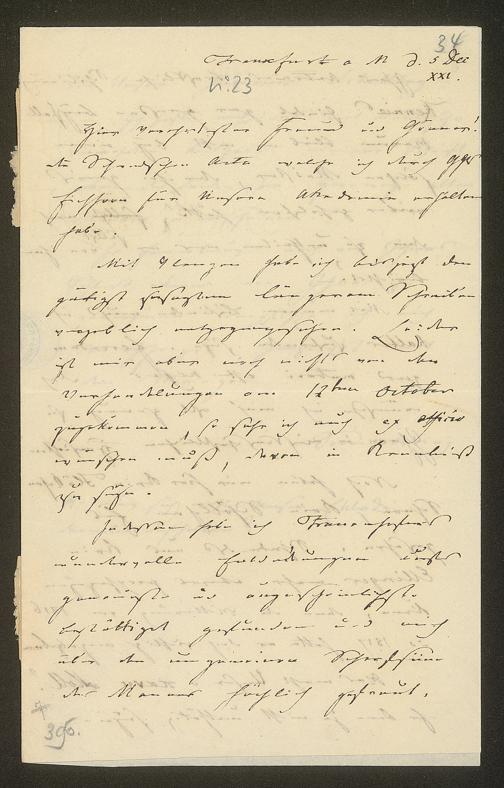 34
Frankfurt a M d. 5 Dec
XXI.
N° 23
Hier verehrtester Freund und Gönner!
die Schwedischen Acta welche ich durch
für Unsere Akademie erhalten
habe.
Mit Verlangen habe ich bis jezt den
gütigst zugesagten längeren Schreiben
vergeblich entgegengesehen. Leider
ist mir aber noch nichts von den
Verhandlungen am 12ten October
zugekommen, so sehr ich auch ex officio
wünschen muß, davon in Kenntniß
zu seyn.
Indessen habe ich Frauenhofers
wundervolle Entdeckungen aufs
genaueste und augenscheinlichste
bestättiget gefunden und mich
über den ungemeinen Scharfsinn
des Mannes höchlich gefreut.
395.